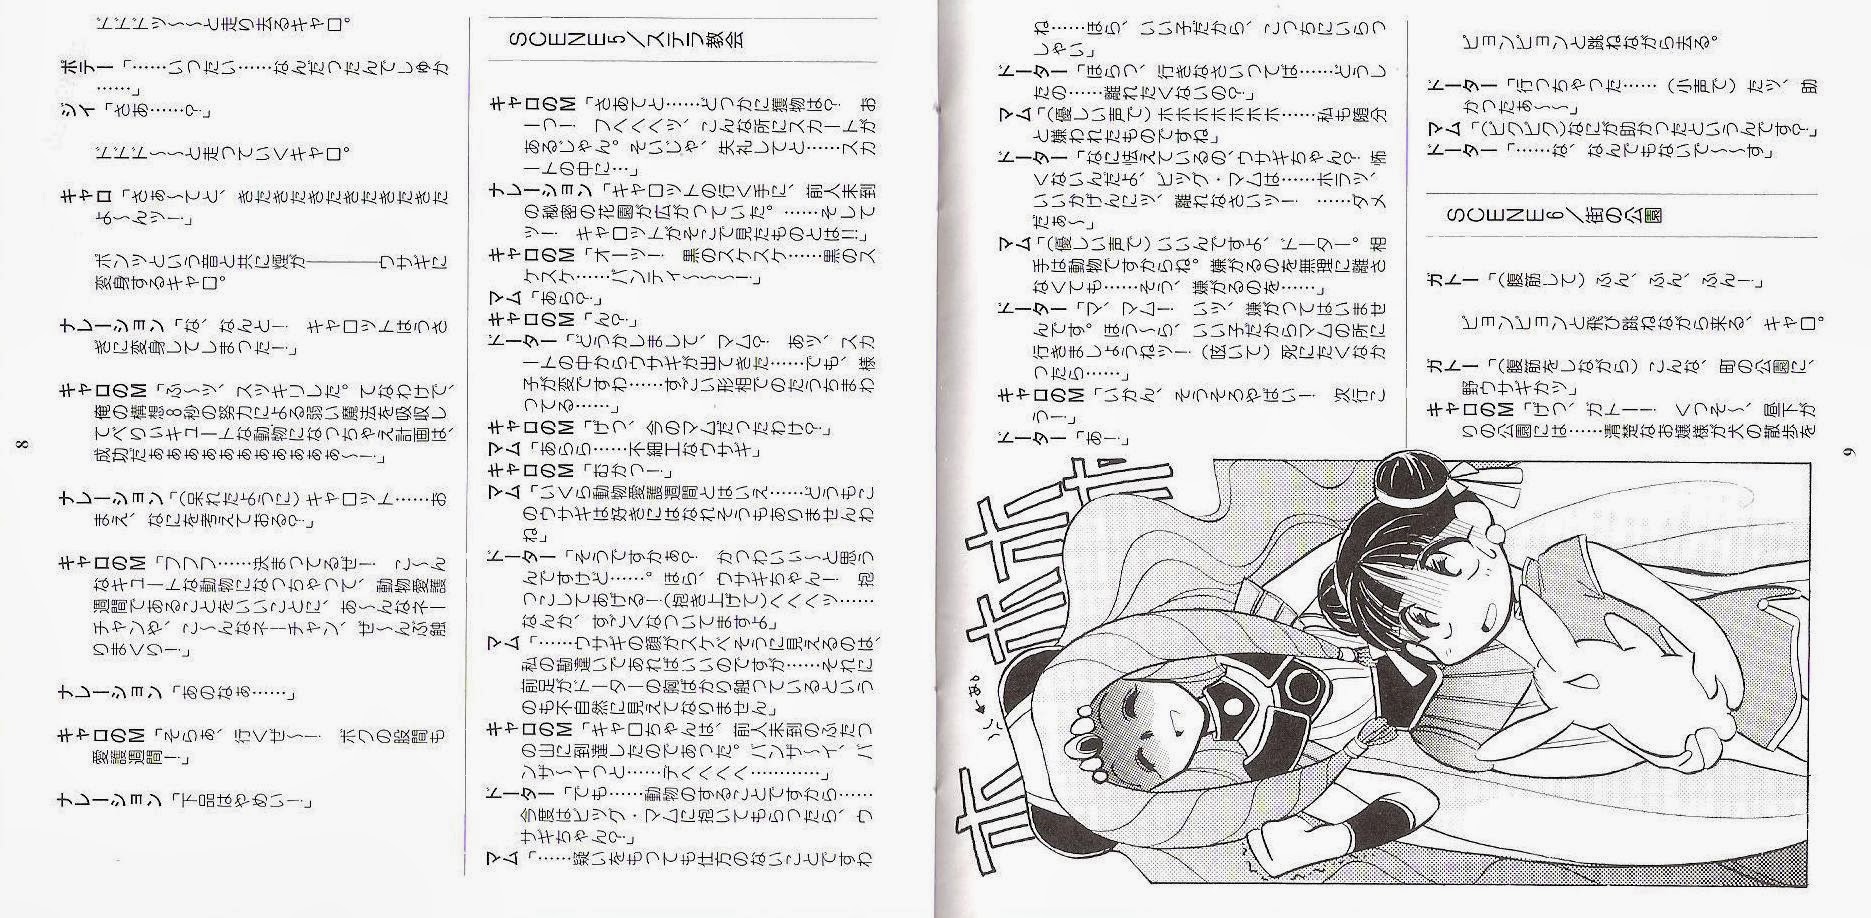 ドドドッ～～と走り去るキャロ。
ポテー「……いったい……なんだったんでしゅか
……」
ジィ「さあ……？」
ドドド～～と走っていくキャロ。
キャロ「さぁ～てと、きたきたきたきたきたきたきた
よ～んッ！」
ボンッという音と共に煙が――――ウサギに
変身するキャロ。
ナレーション「な、なんと！　キャロットはうさ
ぎに変身してしまったー！」
キャロのM「ふ～ッ、スッキリした。てなわけで、
俺の構想8秒の努力による弱い魔法を吸収し
てベリィキュートな動物になっちゃえ計画は、
成功だぁぁぁぁぁぁぁぁぁぁ～！」
ナレーション「（呆れたように）キャロット……お
まえ、なにを考えてある？」
キャロのM「フフフ……決まってるぜ！　こ～ん
なキュートな動物になっちゃって、動物愛護
週間であることをいいことに、あ～んなネー
チャンや、こ～んなネーチャン、ぜ～んぶ触
りまくりー！」
ナレーション「あのなぁ……」
キャロのM「そらぁ、行くぜ～！　ボクの股間も
愛護週間ー！」
ナレーション「下品はやめい！」
8
SCENE 5／ステラ教会
キャロのM「さあてと……どっかに獲物は？　お
ーっ！　フヘヘヘッ、こんな所にスカートが
あるじゃん。そいじゃ、失礼してと……スカ
ートの中に…」
ナレーション「キャロットの行く手に、前人未到
の秘密の花園が広がっていた。……そして
ッ！　キャロットがそこで見たものとは!!」
キャロのM「オーッ！　黒のスケスケ……黒のス
ケスケ……パンティ～～～！」
マム「あら？」
キャロのM「ん？」
ドーター「どうかしまして、マム？　あッ、スカ
ートの中からウサギが出てきた……でも、様
子が変ですわ……すごい形相でのたうちまわ
ってる……」
キャロのM「げっ、今のマムだったわけ？」
マム「あらら……不細工なウサギ」
キャロのM「おかっー！」
マム「いくら動物愛護週間とはいえ……どうもこ
のウサギは好きにはなれそうもありませんわ
ね」
ドーター「そうですかぁ？　かっわいい～と思う
んですけど……。ほら、ウサギちゃん！　抱
っこしてあげるー（抱き上げて）へへへッ……
なんか、すごくなついてますよ」
マム「……ウサギの顔がスケベそうに見えるのは、
私の勘違いであればいいのですが……それに
前足がドーターの胸ばかり触っているという
のも不自然に見えてなりません」
キャロのM「キャロちゃんは、前人未到のふたつ
の山に到達したのであった。バンザ～イ、バ
ンザ～イっと……デヘヘヘヘ…………」
ドーター「でも……動物のすることですから……
今度はビッグ・マムに抱いてもらったら、ウ
サギちゃん？」
マム「……疑いをもっても仕方のないことですわ
ね……ほら、いい子だから、こっちにいらっ
しゃい」
ドーター「ほらっ、行きなさいってば……どうし
たの……離れたくないの？」
マム「（優しい声で）ホホホホホホ……私も随分
と嫌われたものですね」
ドーター「なに怯えているの、ウサギちゃん？　怖
くないんだよ、ビッグ・マムは……ホラッ、
いいかげんにッ、離れなさいッー！　……ダメ
だぁ～」
マム「（優しい声で）いいんですよ、ドーター。相
手は動物ですからね。嫌がるのを無理に離さ
なくても……そう、嫌がるのを……」
ドーター「マ、マム！　いッ、嫌がってはいませ
んです。ほう～ら、いい子だからマムの所に
行きましょうねッー（泣いて）死にたくなか
ったら……」
キャロのM「いかん、そうそろやばい！　次行こ
うー！」
ドーター「あー」
ピョンピョンと跳ねながら去る。
ドーター「行っちゃった……（小声で）だッ、助
かったぁ～～」
マム「（ピクピク）なにが助かったというんです？」
ドーター「……な、なんでもないで～～す」
SCENE 6／街の公園
ガトー「（腹筋して）ふん、ふん、ふんー！」
ピョンピョンと飛び跳ねながら来る、キャロ。
ガトー「（腹筋をしながら）こんな、街の公園に、
野ウサギかッ」
キャロのM「げっ、ガトー！　くっそ～、昼下が
りの公園には……清楚なお嬢様が犬の散歩を
ホホホホホ
あ。
9